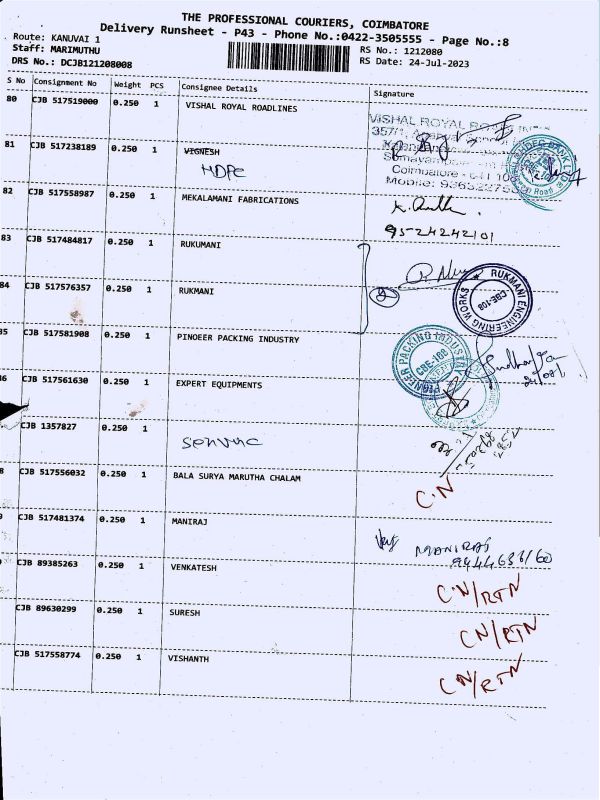 THE PROFESSIONAL COURIERS, COIMBATORE
Delivery Runsheet - P43 - Phone No.:0422-3505555 - Page No.:8
Route: KANUVAI 1
Staff: MARIMUTHU
RS No.: 1212080
DRS No.: DCJB121208008
RS Date: 24-Jul-2023
S No Consignment No Weight PCS Consignee Details Signature
80 CJB 517519000 0.250 1 VISHAL ROYAL ROADLINES
VISHAL ROYAL
357/1,
81 CJB 517238189 0.250 1 VIGNESH
HDPE
Somayampalayam
Coimbatore - 641 108
Mobile:
82 CJB 517558987 0.250 1 MEKALAMANI FABRICATIONS
9524242101
83 CJB 517484817 0.250 1 RUKUMANI
84 CJB 517576357 0.250 1 RUKMANI
2
RUKMANI ENGINEERING WORKS
CBE-108
35 CJB 517581908 0.250 1 PINOEER PACKING INDUSTRY
PIONEER PACKING INDUSTRY
CBE-108
36 CJB 517561630 0.250 1 EXPERT EQUIPMENTS
CJB 1357827 0.250 1
8 CJB 517556032 0.250 1 BALA SURYA MARUTHA CHALAM
C.N
9 CJB 517481374 0.250 1 MANIRAJ
MANIRAJ
CJB 89385263 0.250 1 VENKATESH
C.N/RTN
CJB 89630299 0.250 1 SURESH
CN/RTN
CJB 517558774 0.250 1 VISHANTH
CN/RTN